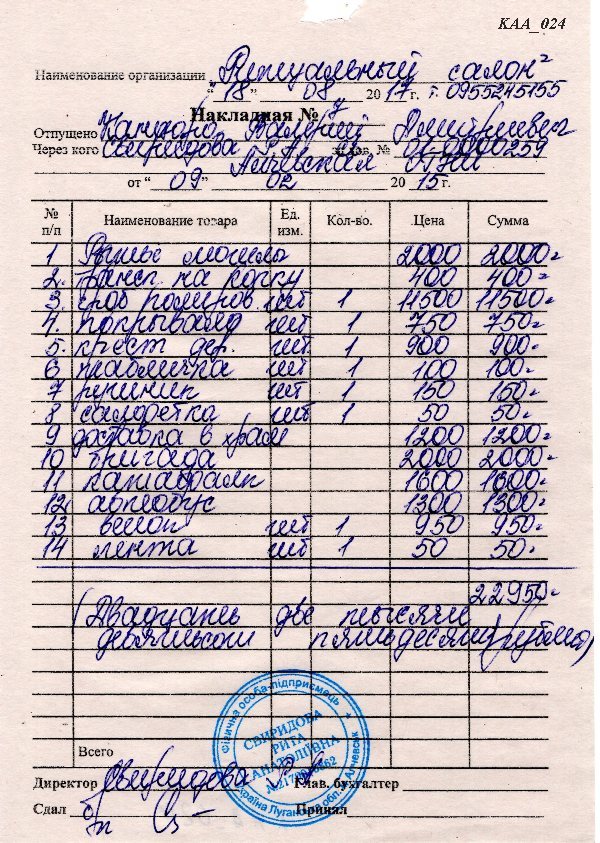 КАА_024
Наименование организации Ритуальный салон
"18" 08 2017 г. т. 0955245155
Накладная № 7
Отпущено Валерий Дмитриевич
Через кого Свиридова Р.А. № 0000259
Алчевская
от "09" 02 2015 г.
№ п/п Наименование товара Ед. изм. Кол-во. Цена Сумма
1 Рытье могилы 2000 2000-
2. на копку 400 400-
3. гроб полиров. шт 1 11500 11500-
4. покрывало шт 1 750 750-
5. крест дер. шт. 1 900 900-
6 табличка шт 1 100 100-
7 рушник шт 1 150 150-
8 салфетка шт 1 50 50-
9 доставка в храм 1200 1200-
10 бригада 2000 2000-
11 катафалк 1600 1600-
12 автобус 1300 1300-
13 венок шт 1 950 950-
14 лента шт 1 50 50-
22950-
(Двадцать две тысячи
девятьсот пятьдесят рублей)
Всего
Директор Свиридова Глав. бухгалтер
Сдал б/п Принял
Фізична особа-підприємець
СВИРИДОВА
РИТА
АНАТОЛІЇВНА
Україна Луганська обл. м. Алчевськ